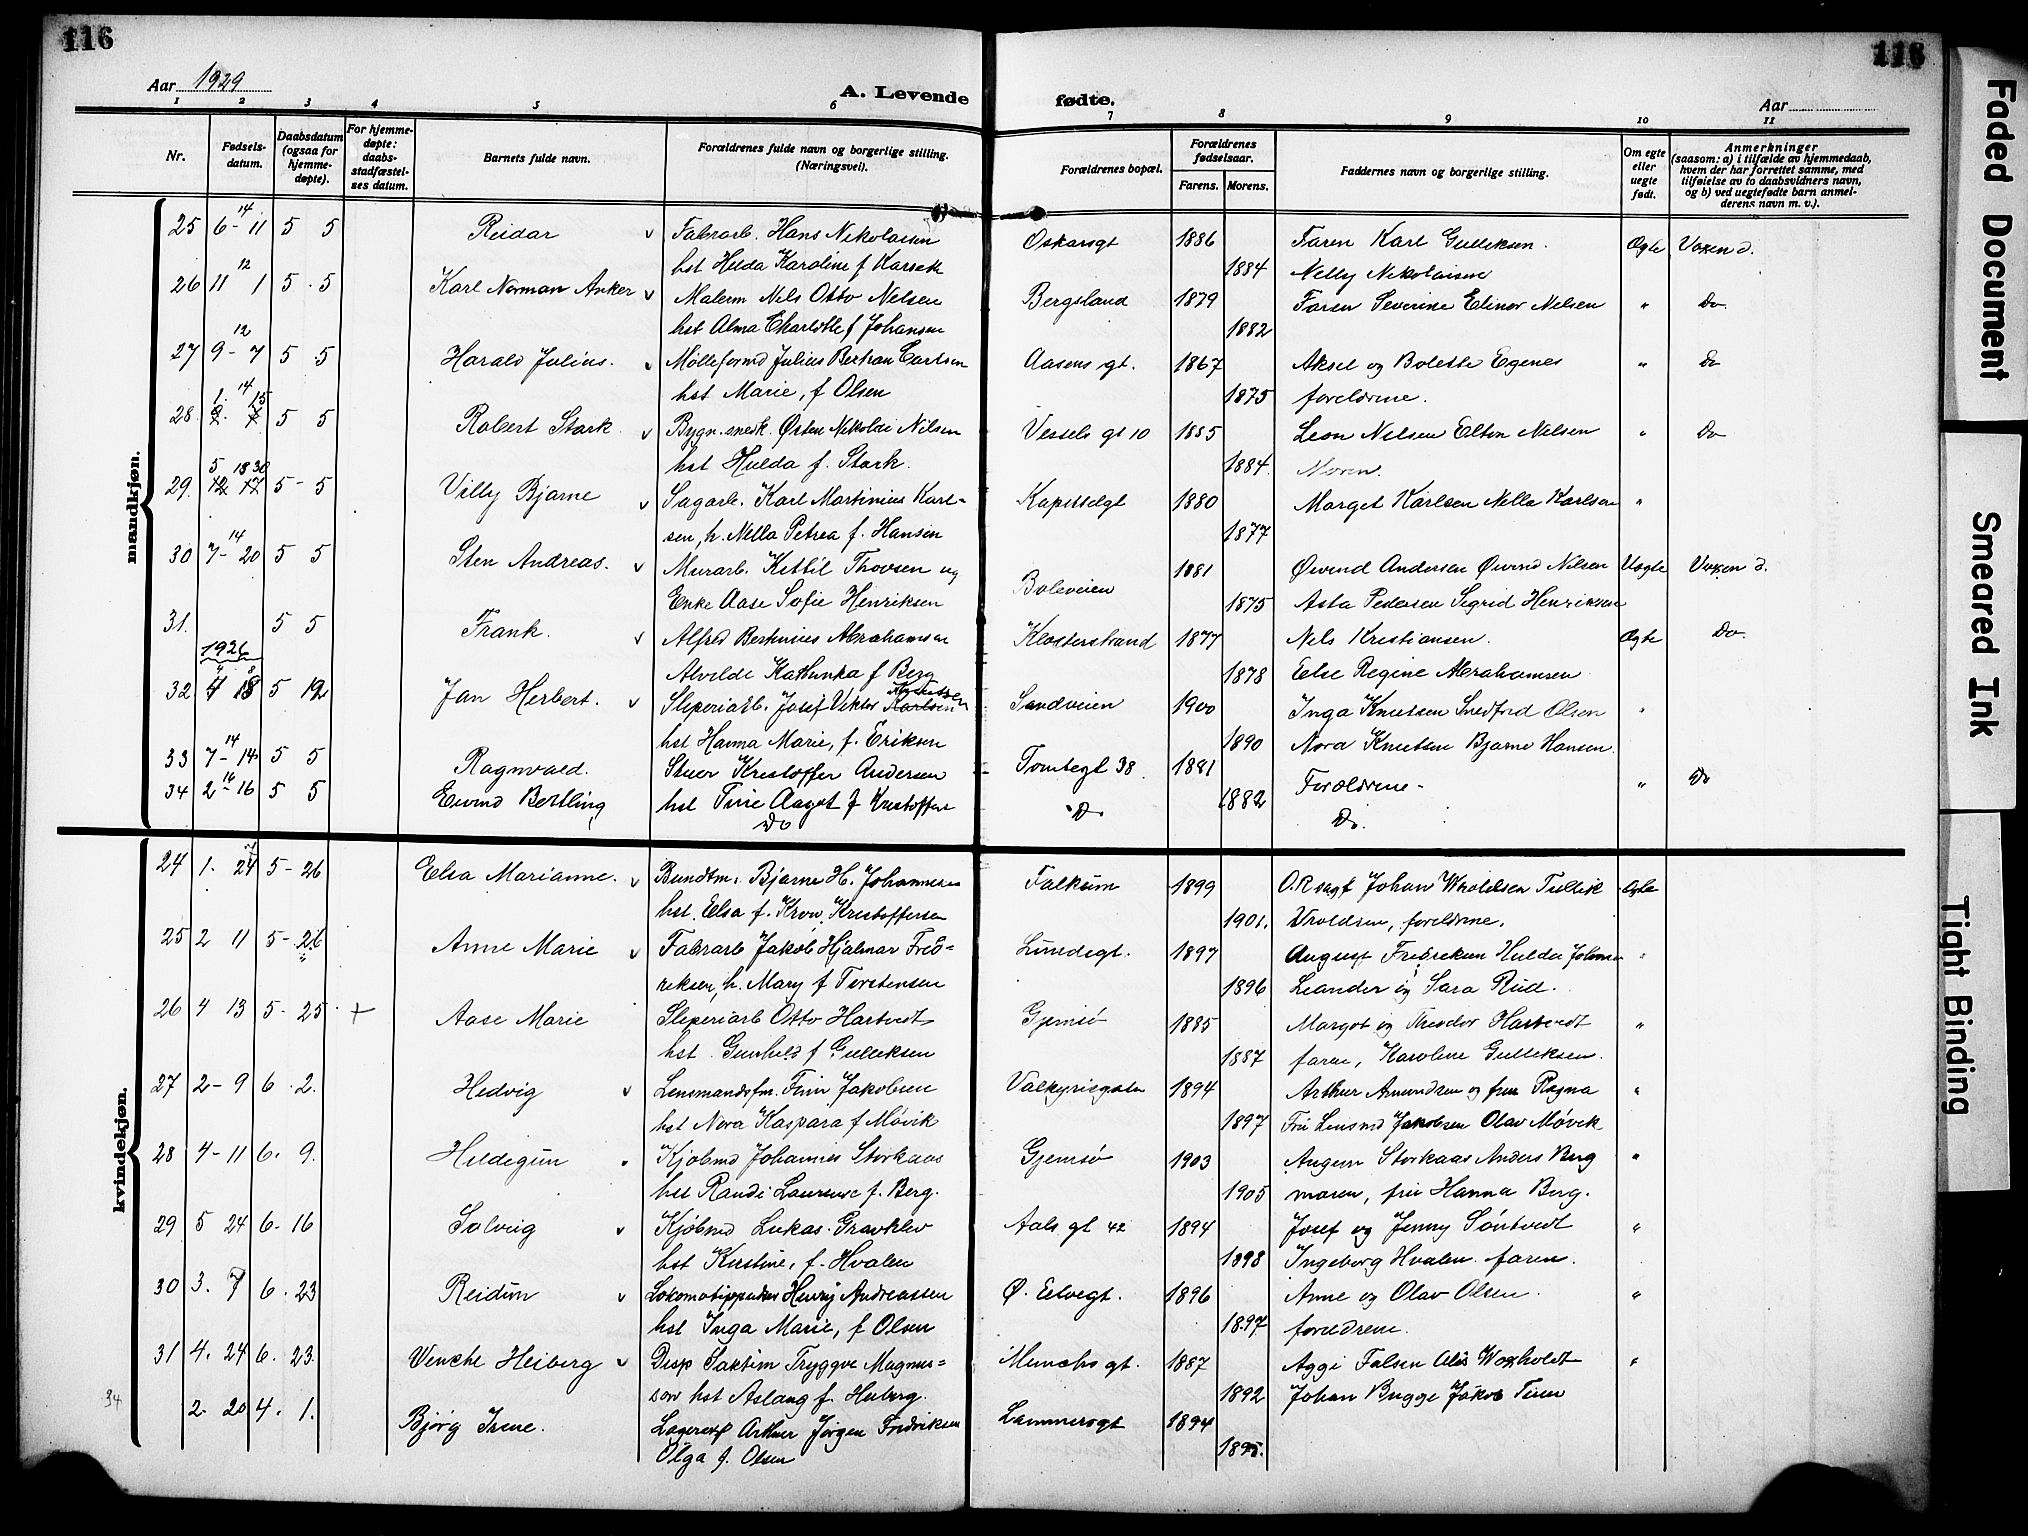 116
116
Aar 1929
A. Levende
fødte.
Aar
1 2 3 4 5 6 7 8 9 10 11
Nr.
Fødsels-
datum.
Daabsdatum
(ogsaa for
hjemme-
døpte).
For hjemme-
døpte:
daabs-
stadfæstel-
ses datum.
Barnets fulde navn.
Forældrenes fulde navn og borgerlige stilling.
(Næringsvei).
Forældrenes bopæl.
Forældrenes
fødselsaar.
Farens. Morens.
Faddernes navn og borgerlige stilling.
Om egte
eller
uegte
født.
Anmerkninger
(saasom: a) i tilfælde av hjemmedaab,
hvem der har forrettet samme, med
tilføielse av to daabsvidners navn,
og b) ved uegtefødte barn anmel-
derens navn m. v.).
mandkjøn.
25 6-14 11 5 5 Reidar v Fabrarb. Hans Nikolaisen Oskarsgt 1886 Faren Karl Gulliksen. Ægte Voxen d.
hst Hilda Karoline f Karsek 1884 Nelly Nikolaisen
26 11 12 1 5 . 5 Karl Norman Anker v Malerm Nils Otto Nelsen Bergsland 1879 Faren Severine Elinor Nelsen " Do
hst Alma Charlotte f Johansen 1882
27 9-12 7 5 5 Harald Julius. v Mølleformd Julius Bertran Carlsen Aasens gt. 1867 Aksel og Bolette Egenes " Do
hst Marie, f Olsen 1875 foreldrene.
28. 1. 14 15 5 5 Robert Stark v Bygn. snedk. Østen Nikolai Nilsen Vessels gt 10 1885 Leon Nelsen Elton Nilsen " Do
hst Hulda f. Stark. 1884. Moren.
29. 5 18 30 12 17 5 - 5 Villy Bjarne v Sagarb. Karl Martinius Karl- Kapittelgt 1880 Marget Karlsen Nella Karlsen "
sen, h. Nella Petrea f. Hansen 1877
30 7-14 20 5 5 Sten Andreas. v Murarb. Kittil Thovsen og Boleveien 1881 Øivind Andersen Øivind Nilsen Uægte Voxen d.
Enke Aase Sofie Henriksen 1875 Asta Pedersen Sigrid Henriksen
31. 5 5 Frank. v Alfred Bertinius Abrahamsen Klosterstrand 1877 Nils Kristiansen. Ægte Do.
1926
Alvilde Kathinka f Berg 1878 Else Regine Abrahamsen
32 4 18 5 12 Jan Herbert. v Sliperiarb. Josef Viktor Karlsen Sandveien 1900 Inga Knutsen Snefrid Olsen "
hst Hanna Marie, f. Eriksen 1890 Nora Knutsen Bjarne Hansen.
33 7-14 14 5 5 Ragnvald. Stuer Kristoffer Andersen - Tomtegt 38 1881 Foreldrene - " Do
34 2-16 16 5 5 Eivind Bertling hst Tine Aagot f Kristoffers Do. 1882 Do.
Do
kvindekjøn.
24 1. 24 5 - 26 Elsa Marianne. v Bundtm. Bjarne H. Johannesen Falkum 1899 O.R sagf Johan Wroldsen Tullik Ægte
hst. Elsa f. Kron. Kristoffersen 1901. Wroldsen, foreldrene.
25 2 11 5 - 26 Anne Marie v Fabrarb Jakob Hjalmar Fred- Lundegt. 1897 August Fredriksen Hulda Johnsen "
riksen, h. Mary f Torstensen 1896 Leander og Sara Rud.
26 4 13 5 - 25 + Aase Marie Sliperiarb Otto Hartvedt Gjemsø 1885 Margot og Theodor Hartvedt "
hst. Gunhild f Gulliksen 1887 faren, Karoline Gulliksen.
27 2-9 6 . 2. Hedvig v Lensmandsfm. Finn Jakobsen Valkyriegaten 1894 Arthur Amundsen og frue Ragna "
hst Nora Kaspara f Møvik 1897 Fru Lensmd Jakobsen Olav Møvik
28 4-11 6. 9. Hildegun Kjøbmd Johannes Storkaas Gjemsø 1903 August Storkaas Anders Berg "
hst Randi Laurense f. Berg. 1905 moren, fru Hanna Berg.
29 5 24 6. 16 Solveig v Kjøbmd Lukas Gravklev Aals gt 42 1894 Josef og Jenny Søntvedt "
hst Kristine, f. Hvalen 1898 Ingeborg Hvalen. faren.
30 3. 7 6. 23 Reidun v Lokomotivpudser Henry Andreassen Ø. Elvegt. 1896 Anne og Olav Olsen. "
hst Inga Marie, f Olsen 1897 foreldrene.
31 4. 24 6. 23. Venche Heiberg v Disp Saktim Tryggve Magnus- Munchs gt. 1887 Aggi Falsen Alis Woxholdt "
son hst Aslaug f. Heiberg. 1892 Johan Bugge Jakob Tinn
34 2. 20 4. 1. Bjørg Irene. Lagerexp Arthur Jörgen Fredriksen Lammersgt 1894
Olga f. Olsen 1895.
Faded Document
Smeared Ink
Tight Binding